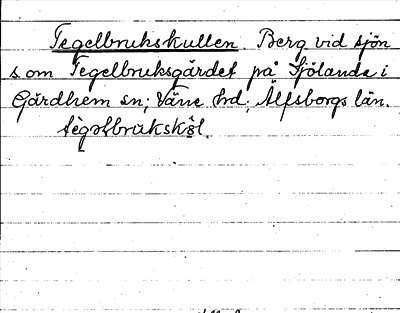 Tegelbrukskullen. Berg vid sjön
s om Tegelbruksgärdet på Sjölanda i
Gärdhem sn; Väne hd; Älfsborgs län.